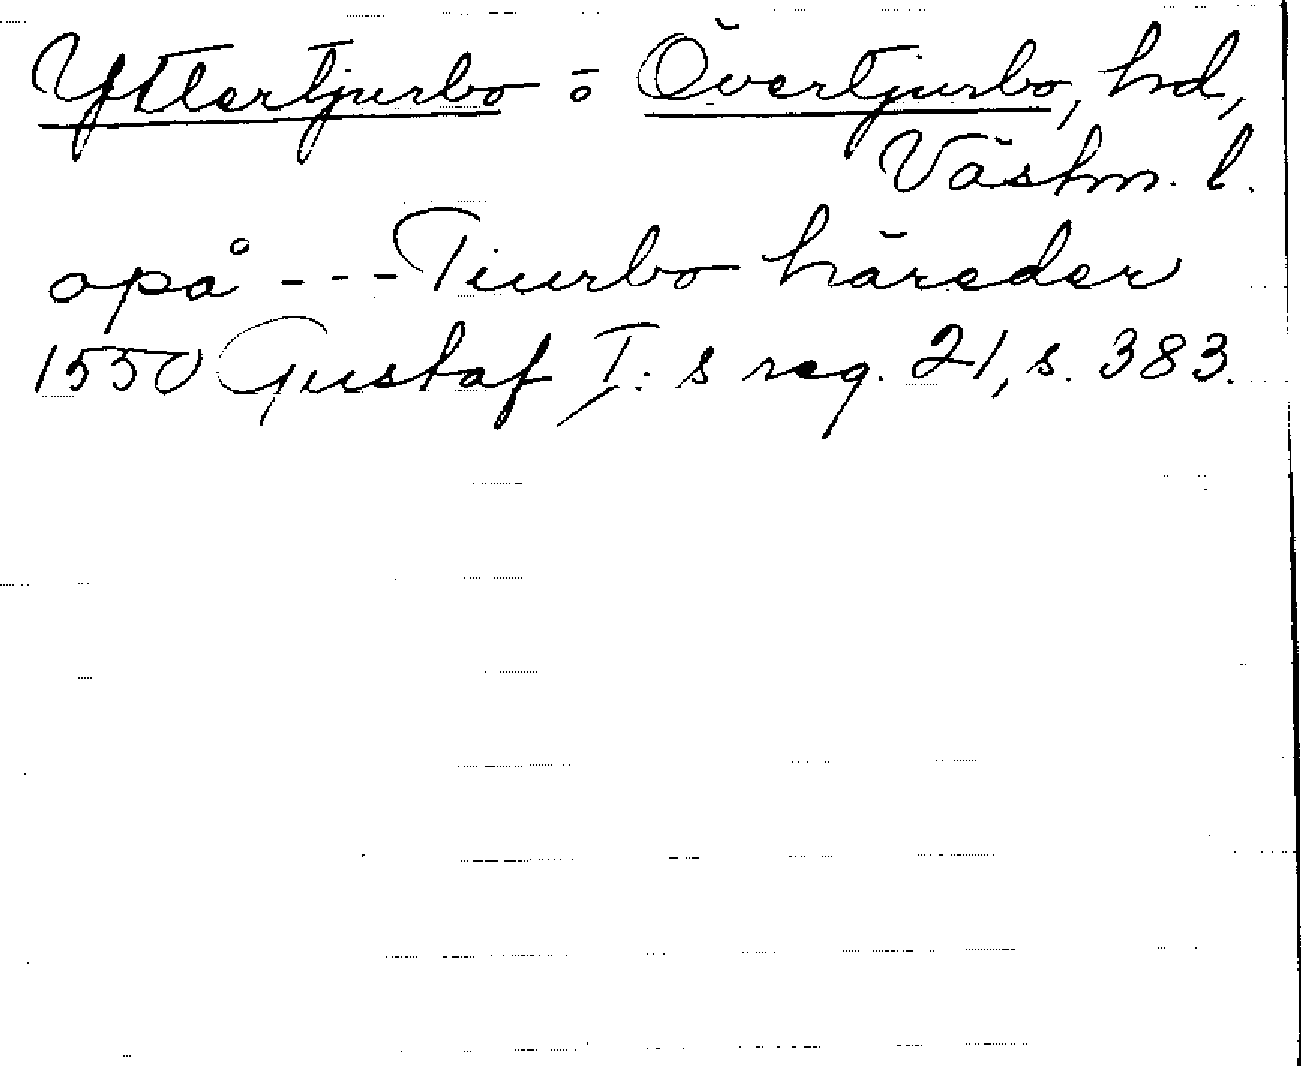 Yttertjurbo o Övertjurbo, hd,
Västm. l.
opå --- Tiurbo häreder
1550 Gustaf I:s reg. 21, s. 383.